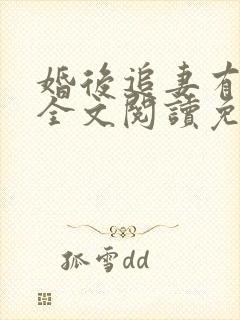 婚後追妻有
全文閱讀免
孤雪dd